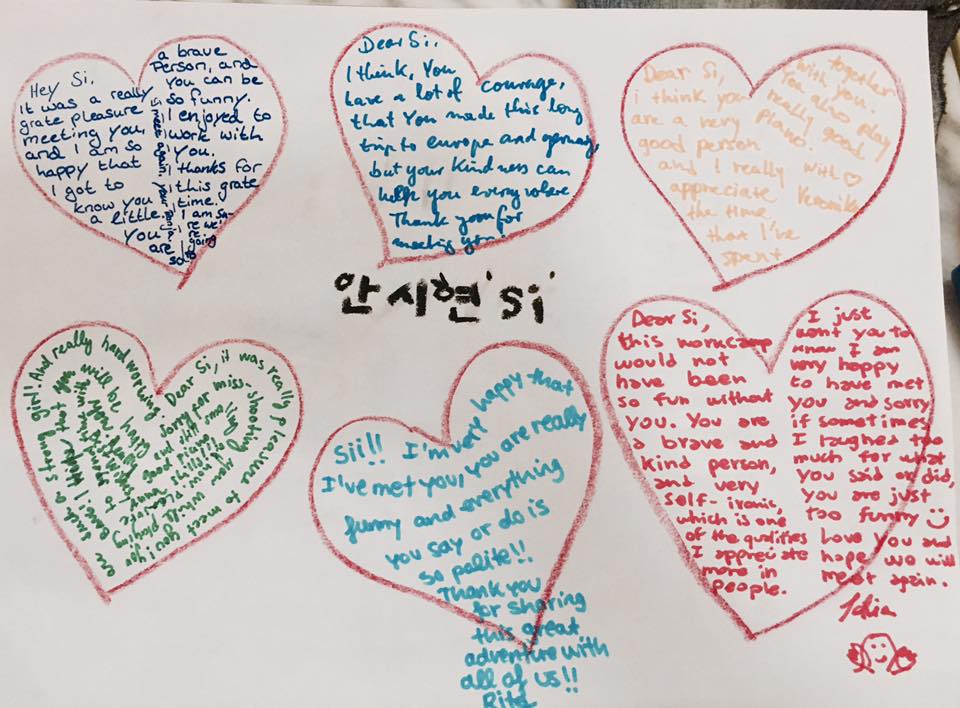 Hey Si,
it was a really
grate pleasure
meeting you,
and I am so
happy that
I got to
know you
a little.
You
are
a brave
Person, and
you can be
so funny.
I enjoyed to
work with
you.
thanks for
this grate
time.
I am su-
re we'
re going
to
Dear Si,
I think, You
have a lot of courage,
that You made this long
trip to europe and germany,
but your kindness can
help you everywhere
Thank you for
meeting you.
Dear Si,
i think you
are a very
good person
and I really
appreciate
the time
that I've
spent
together
with you.
You also play
really good
piano.
with ♡
Veronika
안 시현 'Si'
Dear Si, it was really pleasure to
meet you
sorry for miss-
shooting
girl! And really hardworking
a strong
Sii!! I'm very happy that
I've met you, you are really
funny and everything
you say or do is
so polite!!
Thank you
for sharing
this great
adventure with
all of us!!
Rita
Dear Si,
this workcamp
would not
have been
so fun without
you. You are
a brave and
kind person,
and very
self-ironic,
which is one
of the qualities
I appreciate
more in
people.
I just
want you to
know I am
very happy
to have met
you and sorry
if sometimes
I laughed too
much for what
you said or did,
you are just
too funny
Love you and
hope we will
meet again.